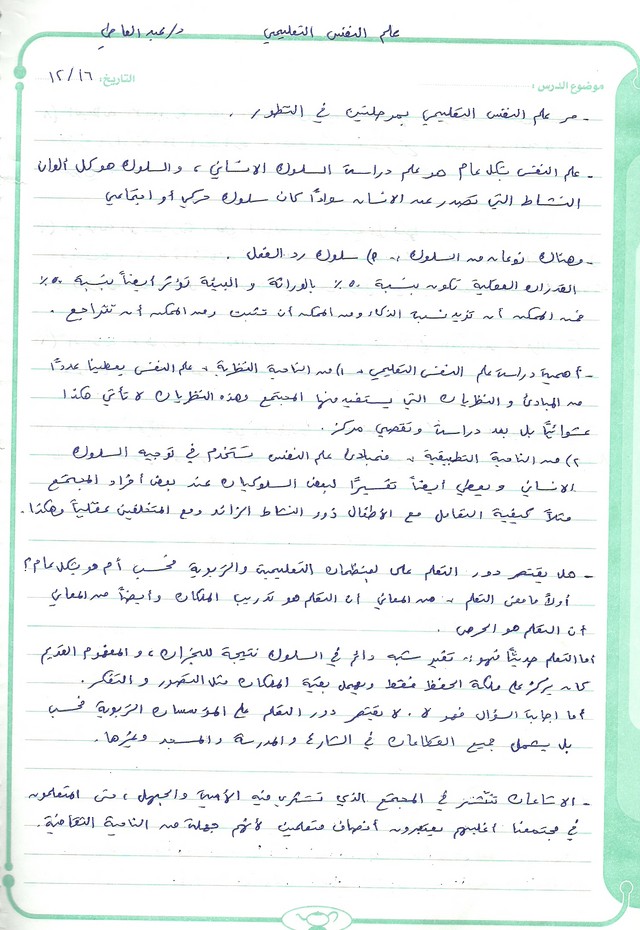 علم النفس التعليمي د/عبد العاطي
موضوع الدرس: التاريخ: ١٢/١٦
- مر علم النفس التعليمي بمرحلتين في التطور .
- علم النفس بشكل عام هو علم دراسة السلوك الانساني ، والسلوك هو كل ألوان
النشاط التي تصدر عن الانسان سواءًا كان سلوك حركي أو اجتماعي
- وهناك نوعان من السلوك :- ٢) سلوك رد الفعل .
القدرات العقلية تكون بنسبة ٥٠٪ بالوراثة و البيئة تؤثر أيضاً بنسبة ٥٠٪
فمن الممكن أن تزيد نسبة الذكاء ومن الممكن أن تثبت ومن الممكن أن تتراجع .
- أهمية دراسة علم النفس التعليمي :- ١) من الناحية النظرية :- علم النفس يعطينا عددًا
من المبادئ و النظريات التي يستفيد منها المجتمع وهذه النظريات لا تأتي هكذا
عشوائيًا بل بعد دراسة وتقصي مركز .
٢) من الناحية التطبيقية :- فمبادئ علم النفس تستخدم في توجيه السلوك
الانساني و يعطي أيضاً تفسيرًا لبعض السلوكيات عند بعض أفراد المجتمع
مثلاً كيفية التعامل مع الأطفال ذوو النشاط الزائد ومع المتخلفين عقلياً وهكذا.
- هل يقتصر دور التعلم على المنظمات التعليمية والتربوية فحسب أم هو بشكل عام؟
أولاً ما معنى التعلم :- من المعاني أن التعلم هو تدريب الملكات وأيضاً من المعاني
أن التعلم هو الحرص .
أما التعلم حديثًا فهو:- تغير شبه دائم في السلوك نتيجة للخبرات ، و المفهوم القديم
كان يركز على ملكة الحفظ فقط ويهمل بقية الملكات مثل التصور و التفكر .
أما اجابة السؤال فهو لا . لا يقتصر دور التعلم على المؤسسات التربوية فحسب
بل يشمل جميع القطاعات في الشارع والمدرسة والمسجد وغيرها.
- الاشاعات تنتشر في المجتمع الذي تستشري فيه الأمية والجهل ، حتى المتعلمون
في مجتمعنا اغلبهم يعتبرون أنصاف متعلمين لأنهم جهلة من الناحية الثقافية.